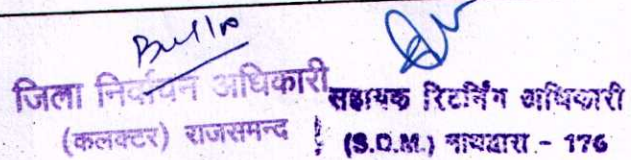 जिला निर्वाचन अधिकारी
(कलक्टर) राजसमन्द
सहायक रिटर्निंग अधिकारी
(S.D.M.) नाथद्वारा - 176